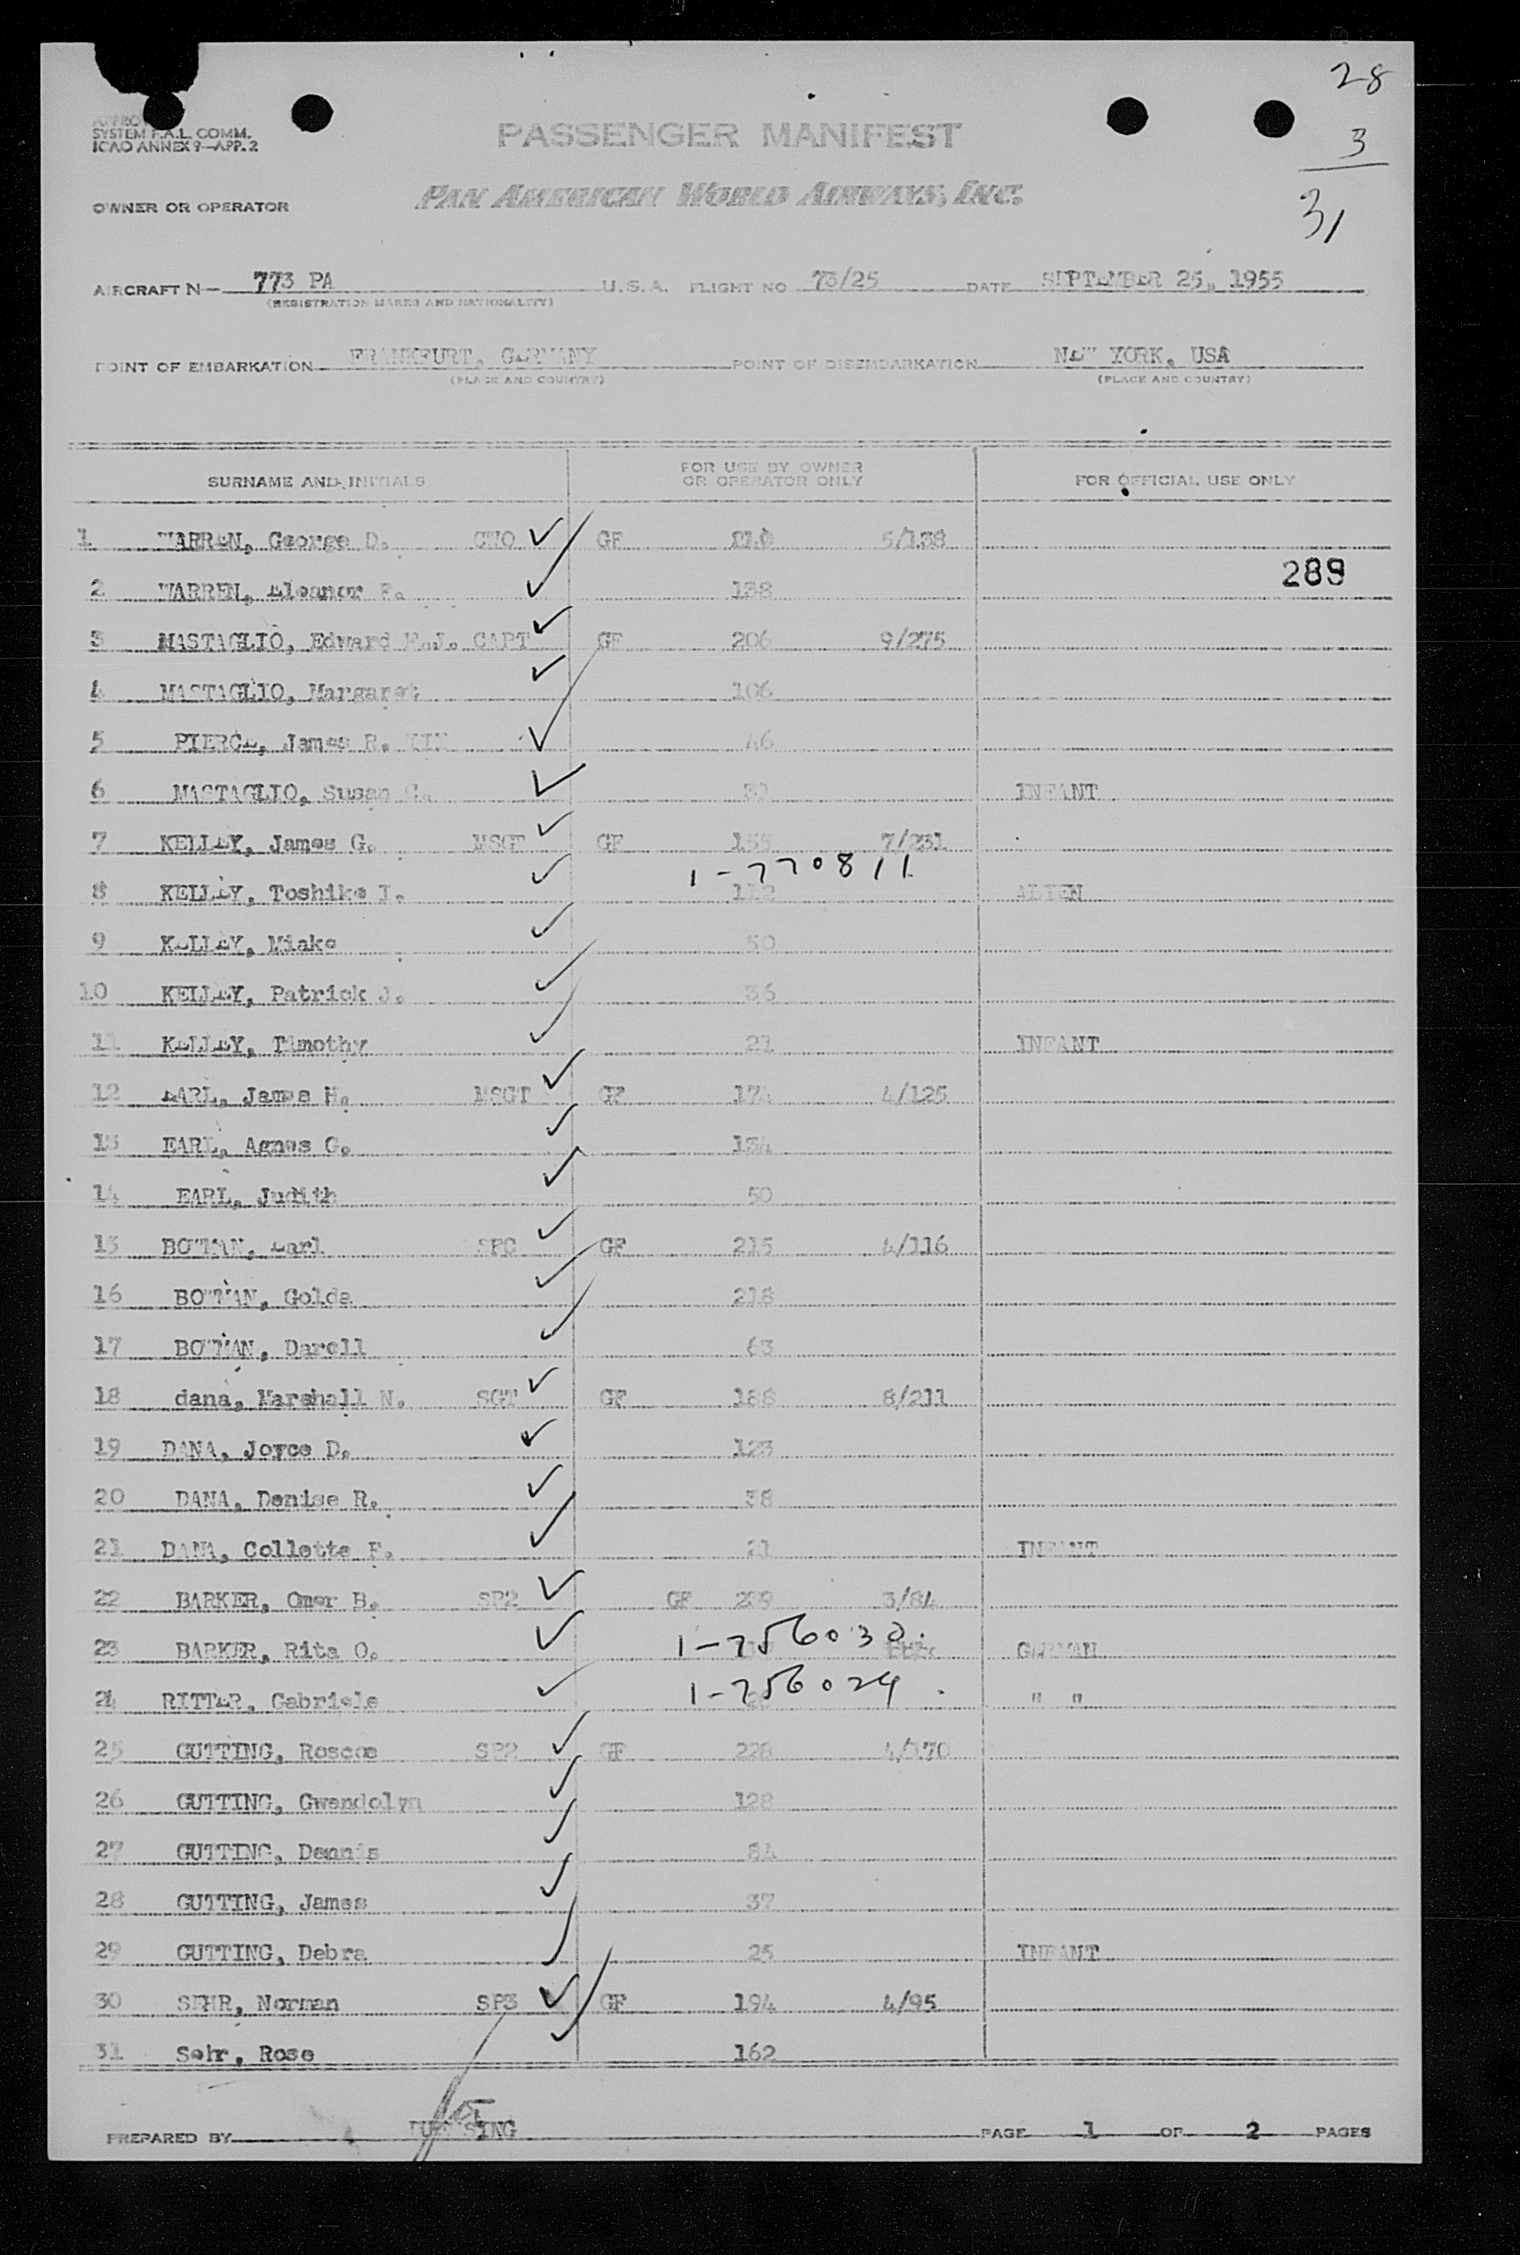 28
3
31
SYSTEM F.A.L. COMM.
ICAO ANNEX 9—APP. 2
PASSENGER MANIFEST
PAN AMERICAN WORLD AIRWAYS, INC.
OWNER OR OPERATOR
AIRCRAFT N— 773 PA U.S.A. FLIGHT NO 73/25 DATE SEPTEMBER 25, 1955
(REGISTRATION MARKS AND NATIONALITY)
POINT OF EMBARKATION FRANKFURT, GERMANY POINT OF DISEMBARKATION NEW YORK, USA
(PLACE AND COUNTRY) (PLACE AND COUNTRY)
SURNAME AND INITIALS FOR USE BY OWNER OR OPERATOR ONLY FOR OFFICIAL USE ONLY
1 WARREN, George D. CWO ✓ GF 5/138
289
2 WARREN, Eleanor F. ✓ 138
3 MASTAGLIO, Edward CAPT ✓ GF 206 9/275
4 MASTAGLIO, Margaret ✓ 106
5 PIERCE, James R. III ✓ 46
6 MASTAGLIO, Susan C. ✓ 31 INFANT
7 KELLEY, James G. MSGT ✓ GF 155 7/231
1-770811
8 KELLEY, Toshiko I. ✓ 112 ALIEN
9 KELLEY, Miako ✓ 50
10 KELLEY, Patrick J. ✓ 36
11 KELLEY, Timothy ✓ 21 INFANT
12 EARL, James H. MSGT ✓ GF 174 4/125
13 EARL, Agnes G. ✓ 134
14 EARL, Judith ✓ 50
15 BOWMAN, Earl SFC ✓ GF 215 4/116
16 BOWMAN, Golda ✓ 218
17 BOWMAN, Darell ✓ 63
18 dana, Marshall N. SGT ✓ GF 188 8/211
19 DANA, Joyce D. ✓ 123
20 DANA, Denise R. ✓ 38
21 DANA, Collette F. ✓ 21 INFANT
22 BARKER, Omer B. SP2 ✓ GF 3/84
23 BARKER, Rita O. ✓ 1-756030. GERMAN
24 RITTER, Gabriele ✓ 1-756024. " "
25 GUTTING, Roscoe SP2 ✓ GF 228 4/170
26 GUTTING, Gwendolyn ✓ 128
27 GUTTING, Dennis ✓ 84
28 GUTTING, James ✓ 37
29 GUTTING, Debra ✓ 25 INFANT
30 SEHR, Norman SP3 ✓ GF 194 4/95
31 Sehr, Rose ✓ 162
PREPARED BY PAGE 1 OF 2 PAGES